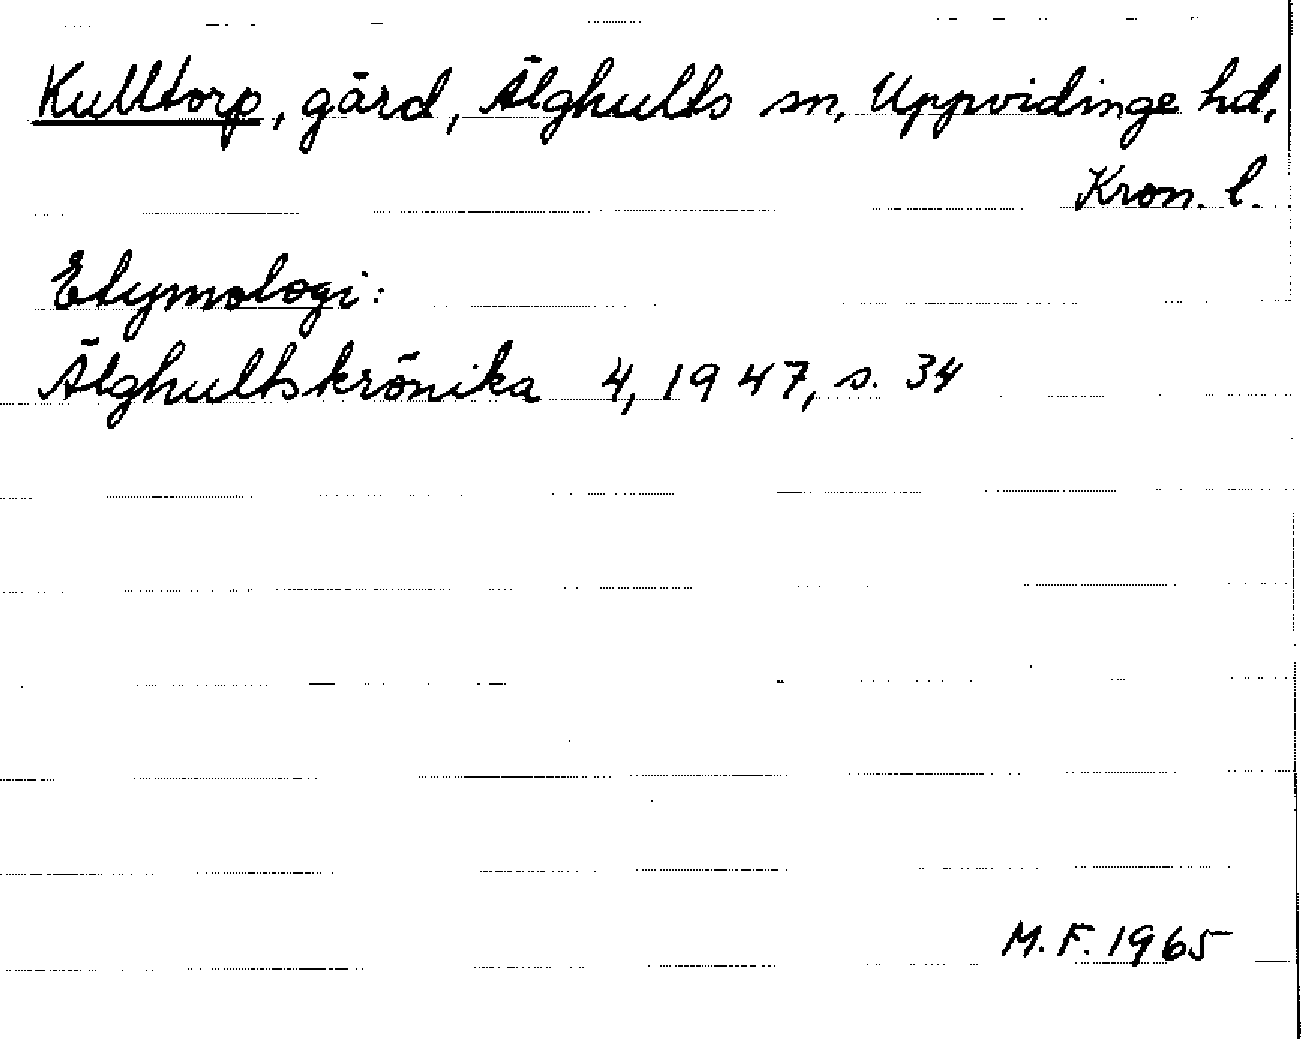 Kulltorp, gård, Älghults sn, Uppvidinge hd,
Kron. l.
Etymologi:
Älghultskrönika 4, 1947, s. 34
M. F. 1965